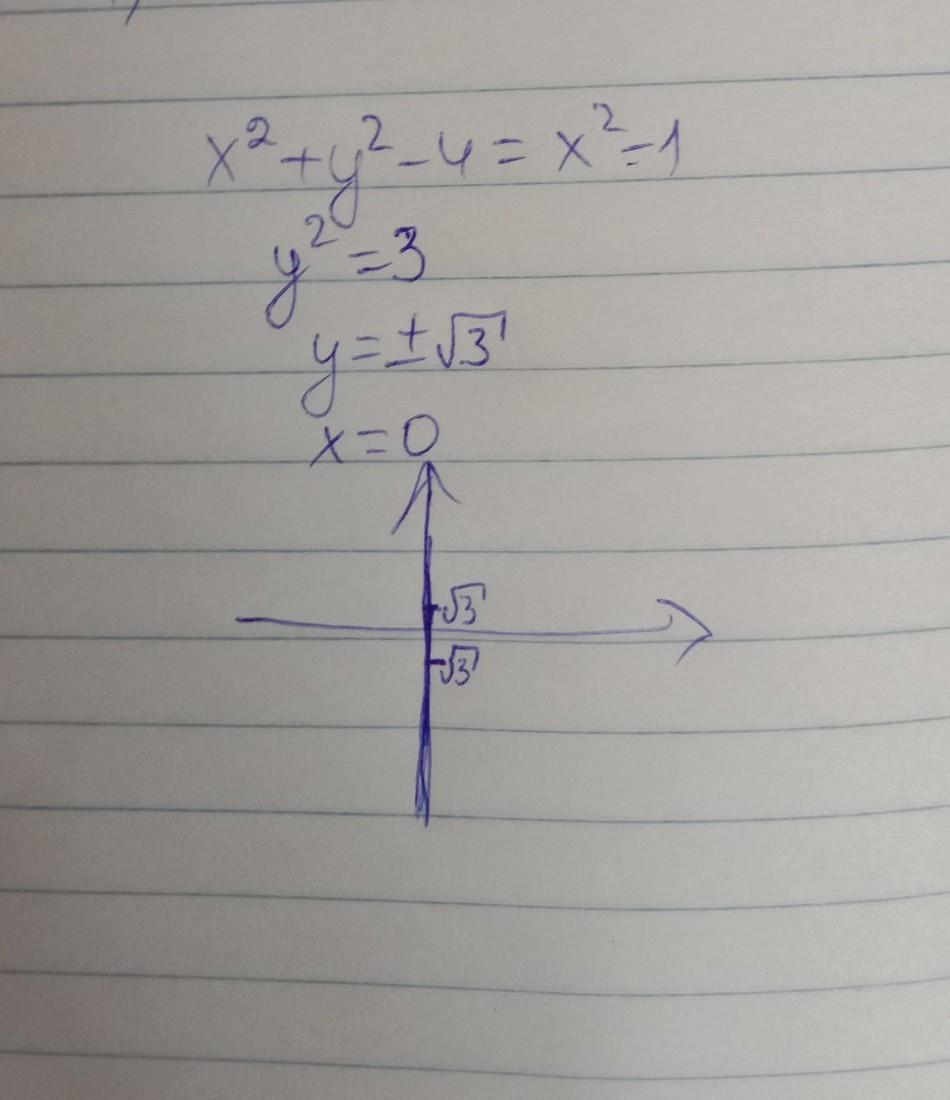 x²+y²-4=x²-1
y²=3
y=±√3
x=0
√3
√3